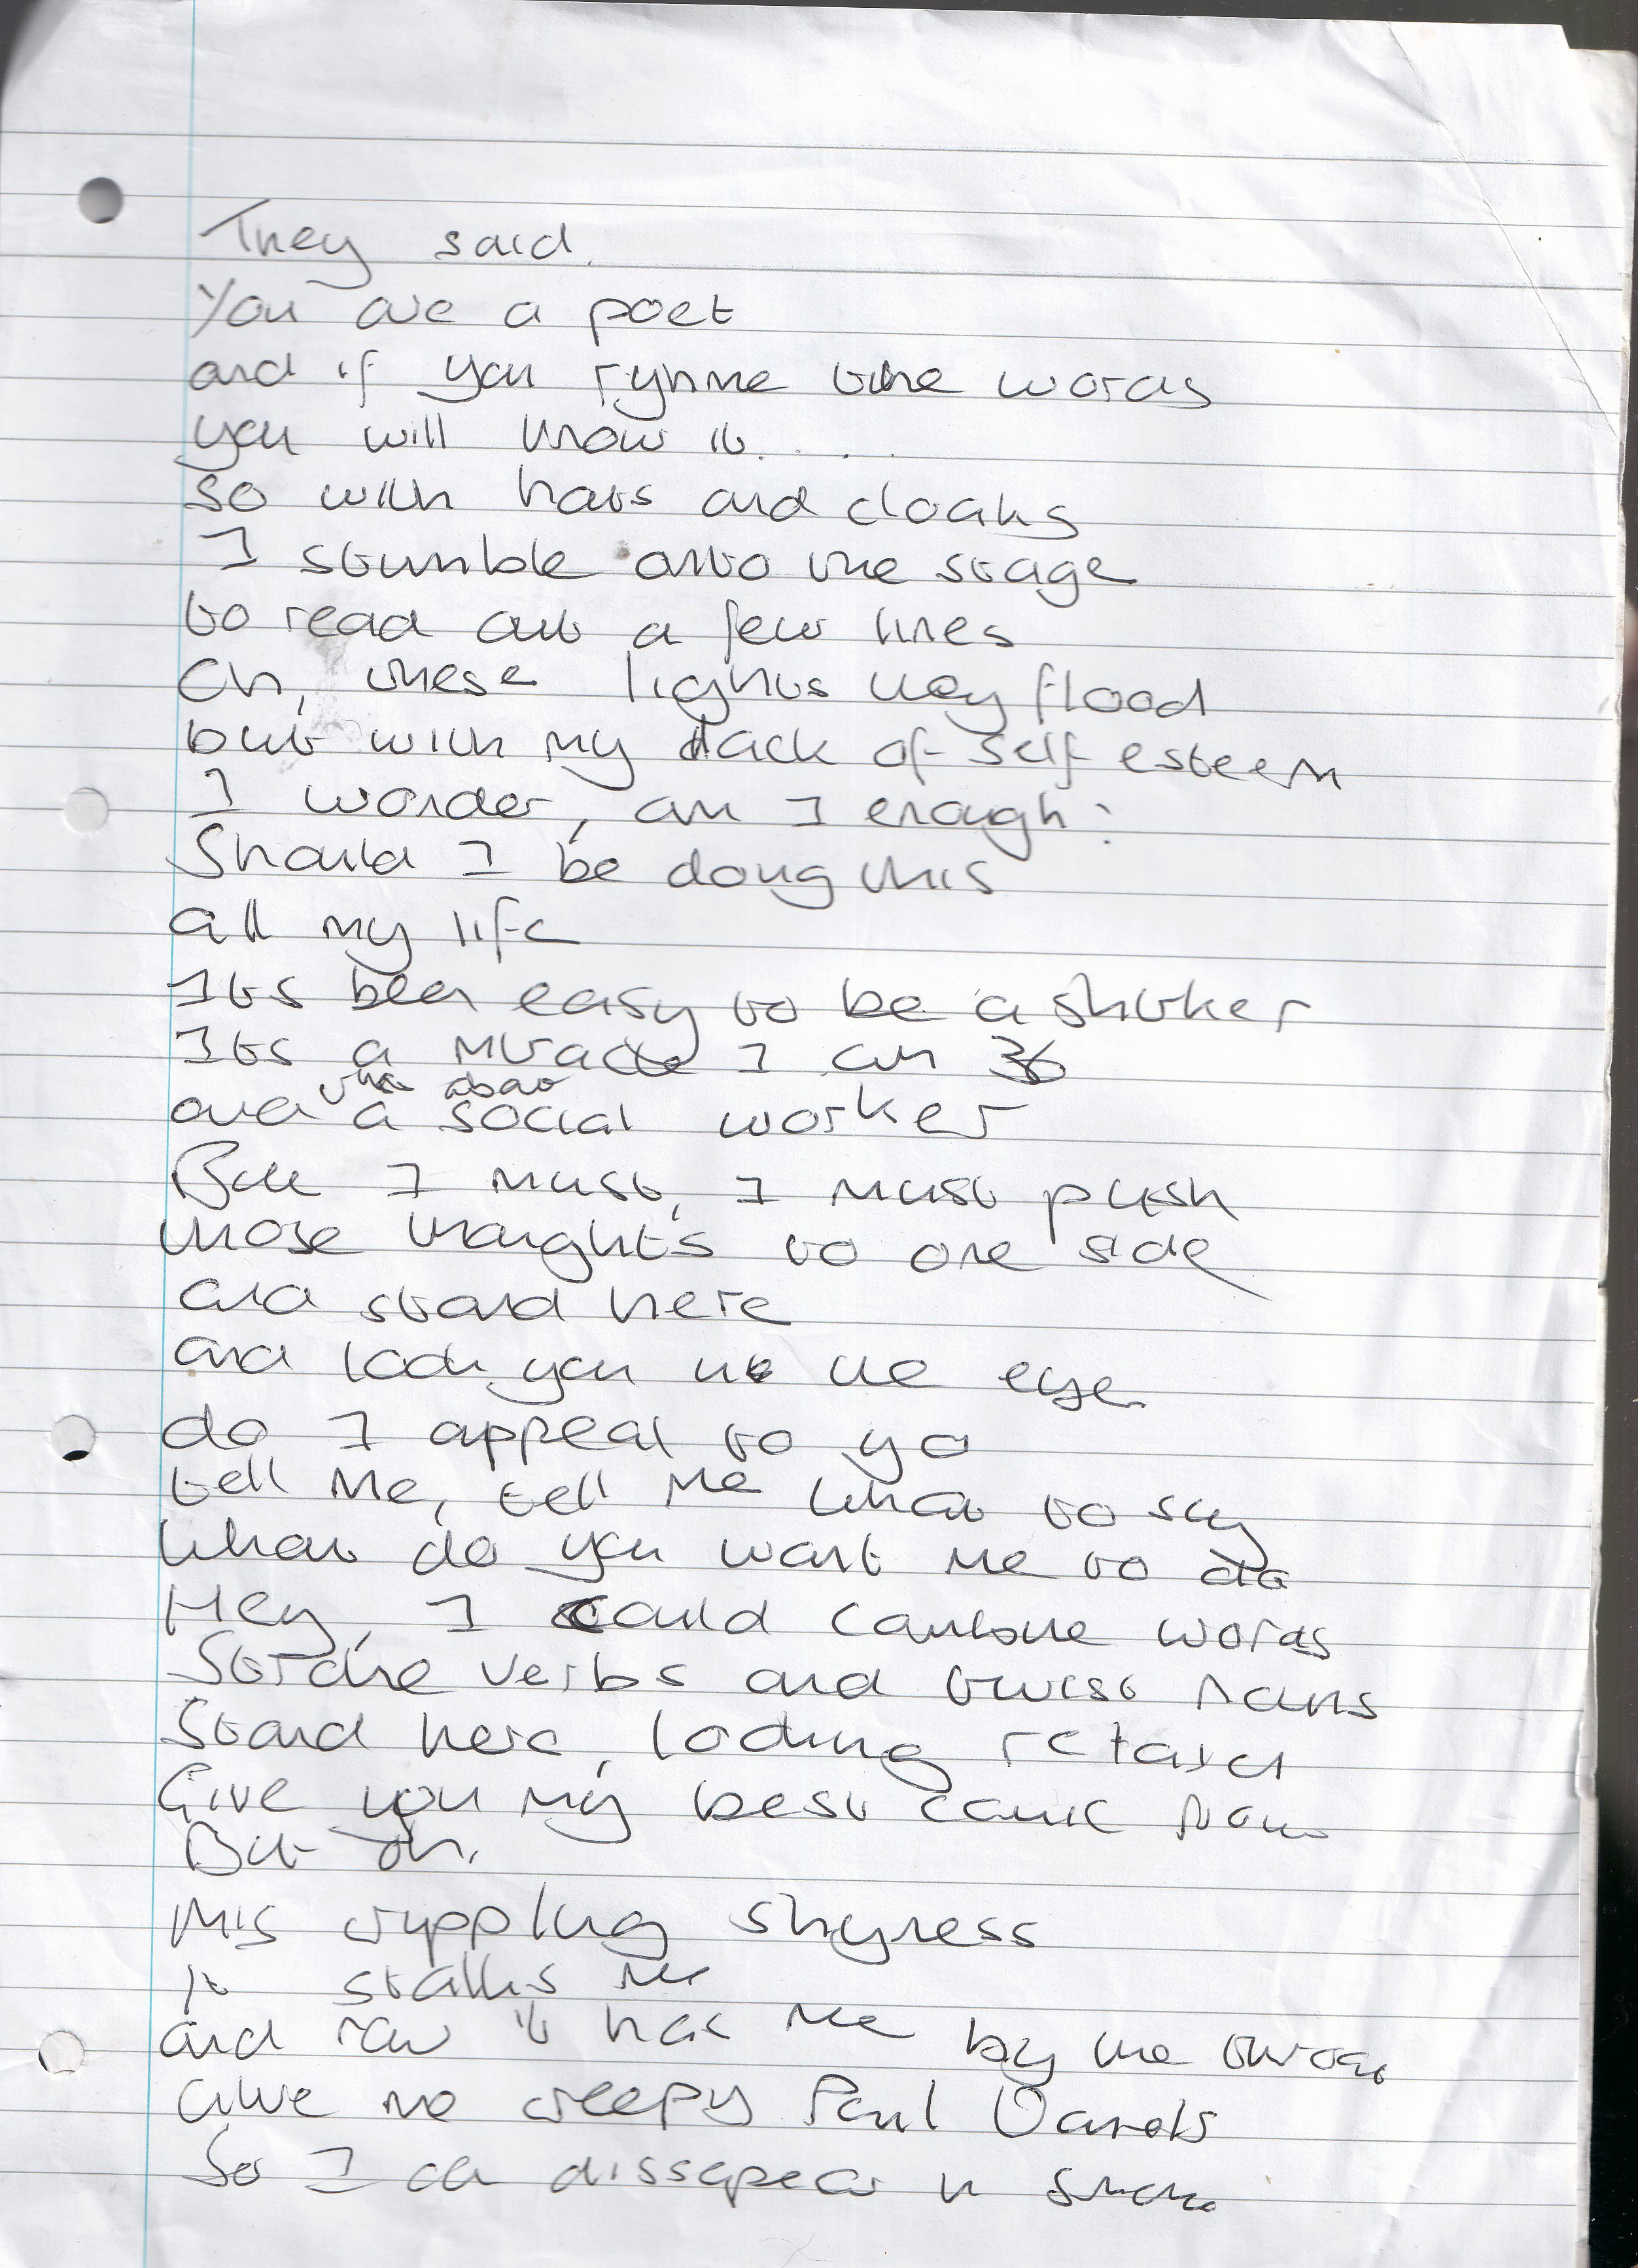 They said.
You are a poet
and if you ryhme the words
you will know it. . . .
So with hats and cloaks
I stumble onto the stage
to read out a few lines
Oh, these lights they flood
but with my lack of self esteem
I wonder, am I enough?
Should I be doing this
all my life
Its been easy to be a shirker
Its a miracle I am 36
the about
and a social worker
But I must, I must push
those thoughts to one side
and stand here
and look you in the eye
do I appeal to yo
tell me, tell me what to say
what do you want me to do
Hey, I could combine words
Stroke verbs and twist nouns
Stand here, looking relaxed
Give you my best comic
But oh,
this crippling shyness
It stalks me
and now it has me by the throat
Give me creepy Paul Daniels
So I can dissapear in smoke